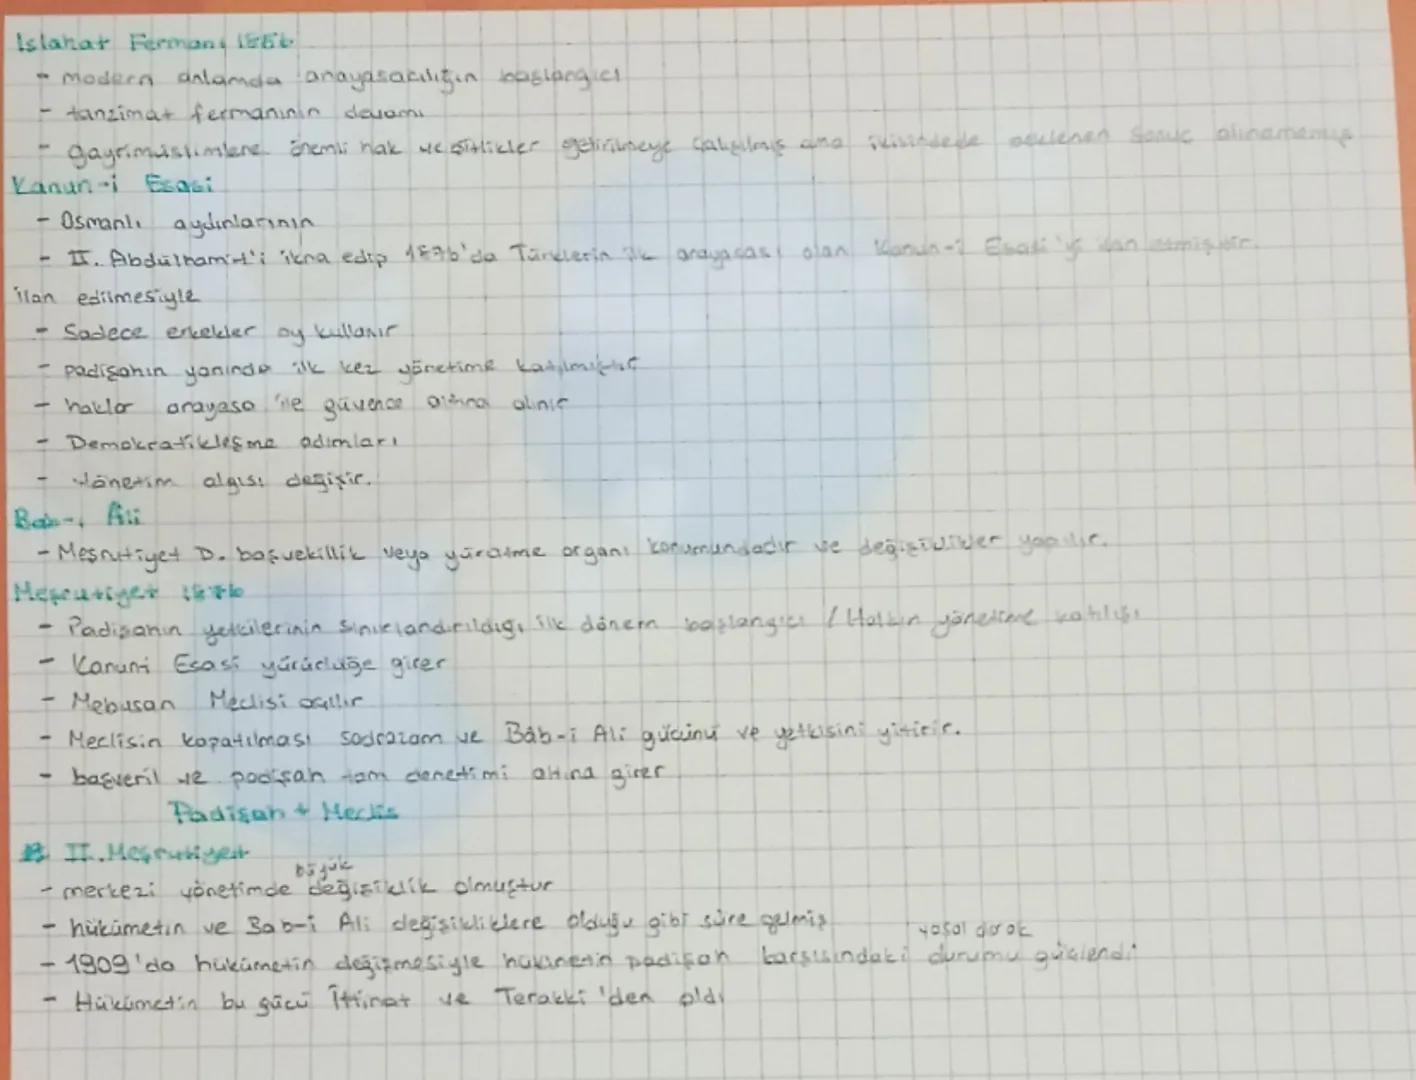 Islahat Fermanı 1856
- modern anlamda anayasacılığın başlangıcı
- tanzimat fermanının devamı
- gayrimüslimlere önemli hak ve eşitlikler getirilmeye çalışılmış ama ikisindede beklenen sonuç alınamamış
Kanun-i Esasi
- Osmanlı aydınlarının
- II. Abdülhamit'i ikna edip 1876'da Türklerin ilk anayasası olan Kanun-i Esasi'yi ilan etmiştir.
ilan edilmesiyle
- Sadece erkekler oy kullanır
- padişahın yanında ilk kez yönetime katılmıştır
- haklar anayasa ile güvence altına alınır
- Demokratikleşme adımları
- Yönetim algısı değişir.
Bab-ı Ali
- Meşrutiyet D. başvekillik veya yürütme organı konumundadır ve değişiklikler yapılır.
Meşrutiyet 1876
- Padişahın yetkilerinin sınırlandırıldığı ilk dönem başlangıcı / Halkın yönetime katılışı
- Kanuni Esasi yürürlüğe girer
- Mebusan Meclisi açılır
- Meclisin kapatılması sadrazam ve Bâb-i Ali gücünü ve yetkisini yitirir.
- başveril ve padişah tam denetimi altına girer
Padişah + Meclis
II. Meşrutiyet
- merkezi yönetimde büyük değişiklik olmuştur
- hükümetin ve Bab-i Ali değişikliklere olduğu gibi süre gelmiş
- 1909'da hükümetin değişmesiyle hükümetin padişah karşısındaki yasal olarak durumu güçlendi
- Hükümetin bu gücü İttihat ve Terakki'den aldı